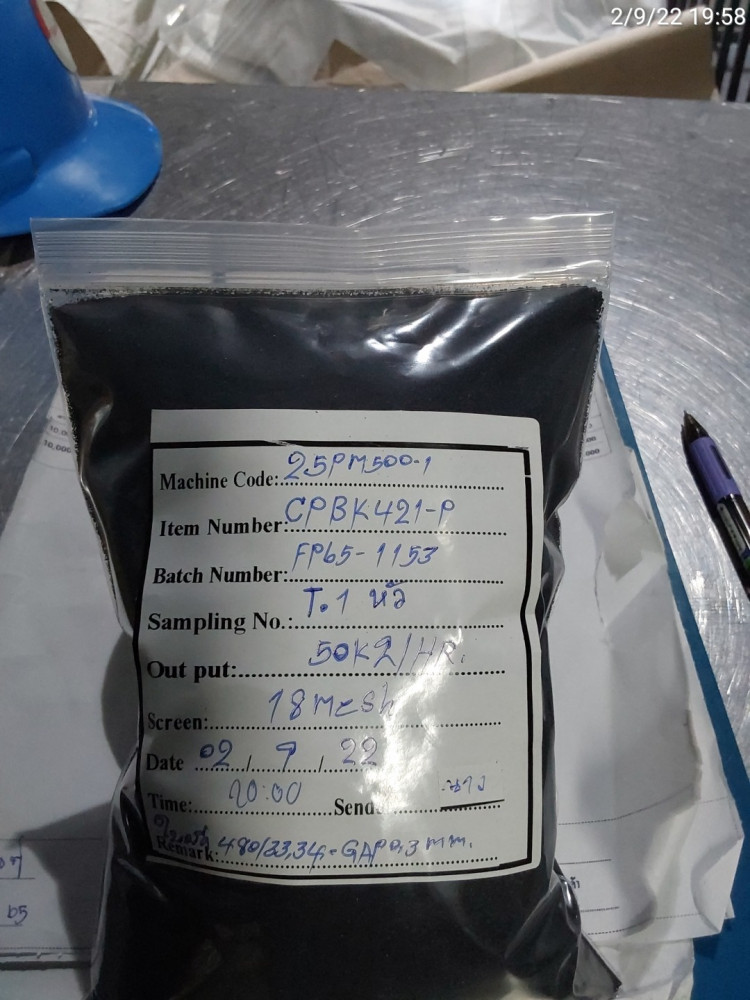 2/9/22 19:58
10,000
Machine Code: 25PM500-1
Item Number: CPBK421-P
Batch Number: FP65-1153
Sampling No.: T.1 หัว
Out put: 50K2/HR.
Screen: 18 mesh
Date 02 / 9 / 22
Time: 20:00 Sende
Remark: 480/33,34, GAP 0,3 mm.
65